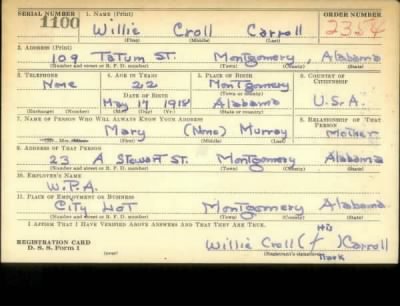 SERIAL NUMBER 1. NAME (Print) ORDER NUMBER
1100 Willie Croll Carroll 2354
(First) (Middle) (Last)
2. ADDRESS (Print)
109 Tatum St. Montgomery, Alabama
(Number and street or R. F. D. number) (Town) (County) (State)
3. TELEPHONE 4. AGE IN YEARS 5. PLACE OF BIRTH 6. COUNTRY OF CITIZENSHIP
None 22 Montgomery
DATE OF BIRTH (Town or county)
May 17 1918 Alabama U.S.A.
(Exchange) (Number) (Mo.) (Day) (Yr.) (State or country)
7. NAME OF PERSON WHO WILL ALWAYS KNOW YOUR ADDRESS 8. RELATIONSHIP OF THAT PERSON
Mary (None) Murray Mother
(First) (Middle) (Last)
9. ADDRESS OF THAT PERSON
23 A Stewart St. Montgomery Alabama
(Number and street or R. F. D. number) (Town) (County) (State)
10. EMPLOYER'S NAME
W.P.A.
11. PLACE OF EMPLOYMENT OR BUSINESS
City Montgomery Alabama
(Number and street or R. F. D. number) (Town) (County) (State)
I AFFIRM THAT I HAVE VERIFIED ABOVE ANSWERS AND THAT THEY ARE TRUE.
REGISTRATION CARD
D. S. S. Form 1 (over)
his
Willie Croll ( ) Carroll
(Registrant's signature)
Mark